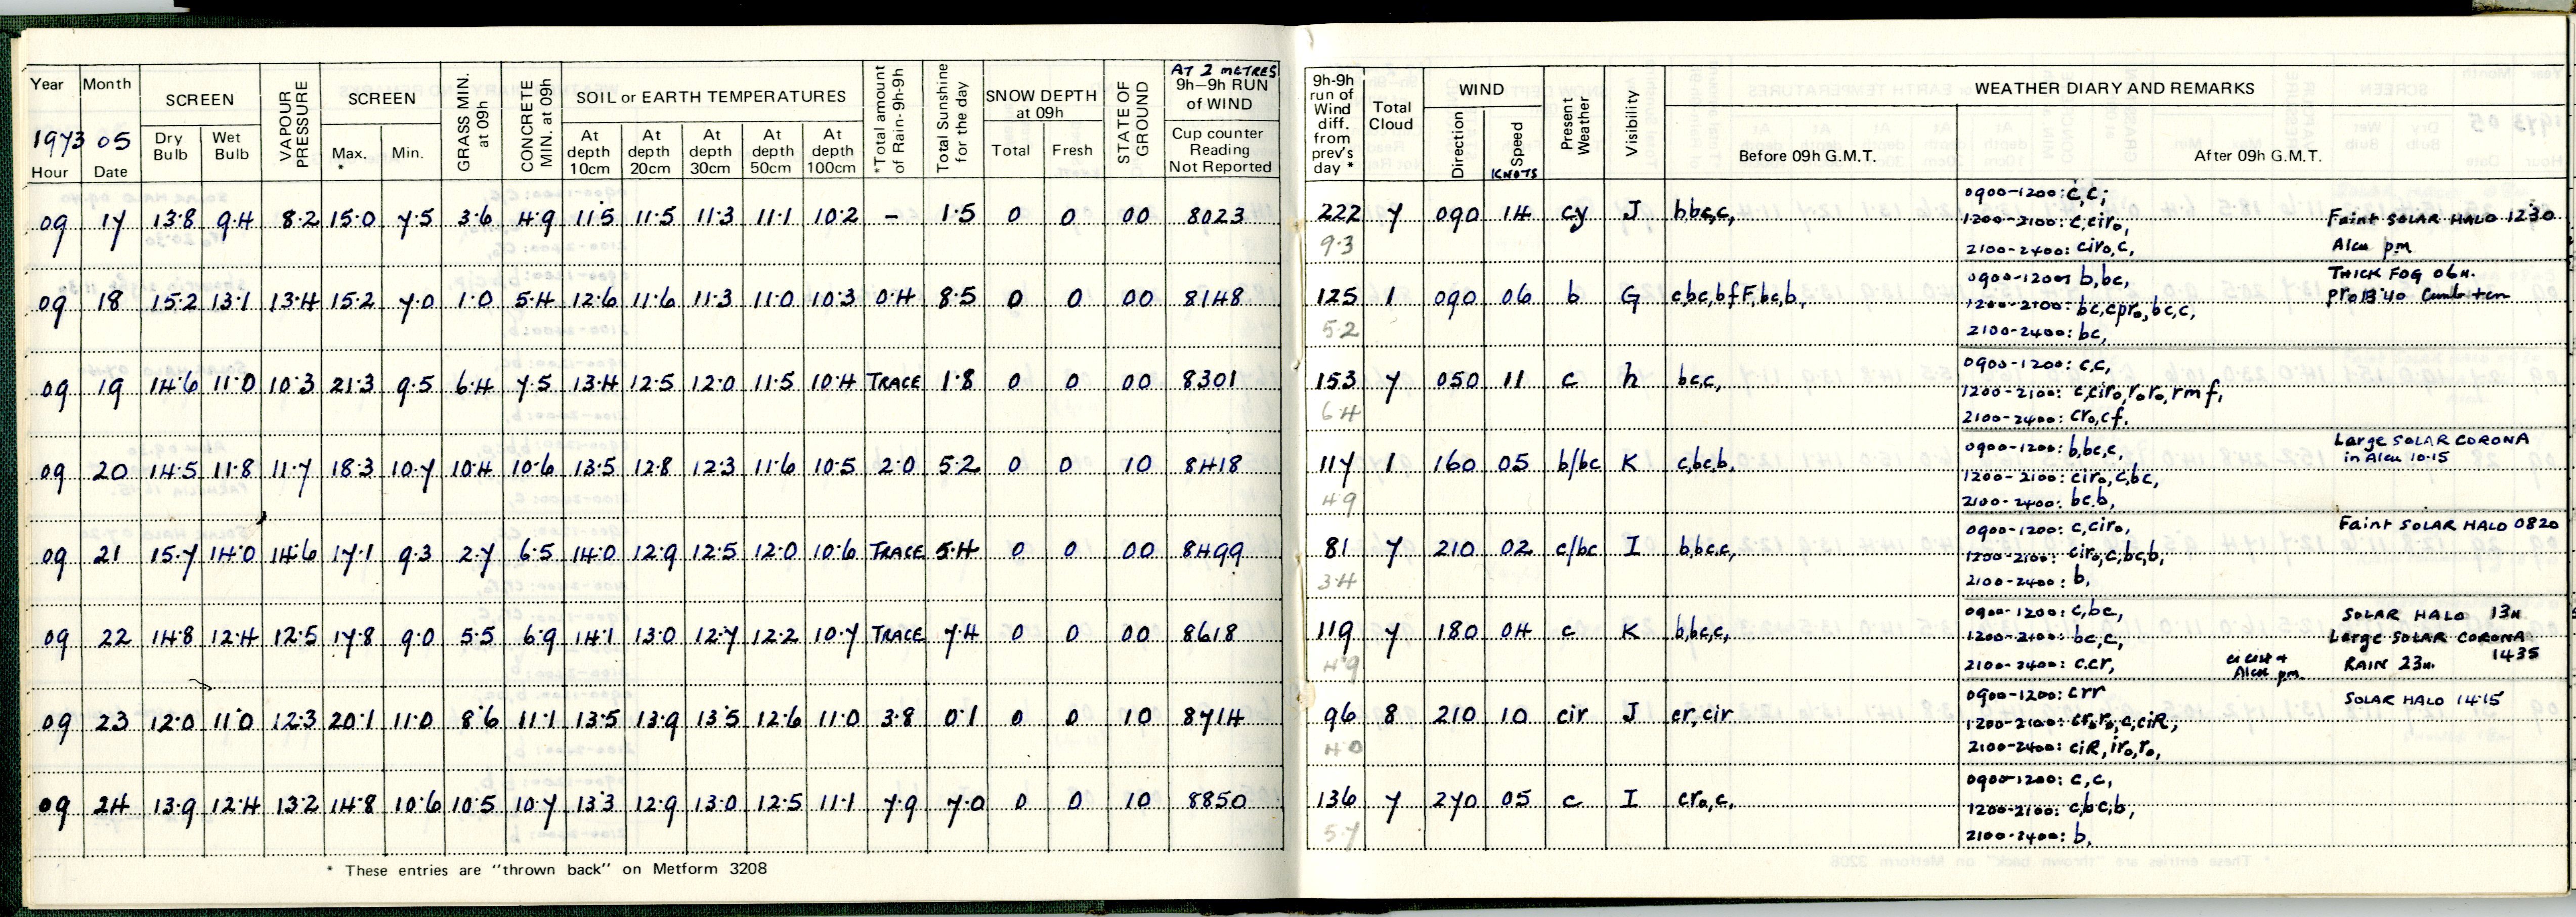 Year Month SCREEN VAPOUR PRESSURE SCREEN GRASS MIN. at 09h CONCRETE MIN. at 09h SOIL or EARTH TEMPERATURES *Total amount of Rain-9h-9h Total Sunshine for the day SNOW DEPTH at 09h STATE OF GROUND AT 2 METRES 9h-9h RUN of WIND
1973 05 Dry Bulb Wet Bulb Max. * Min. At depth 10cm At depth 20cm At depth 30cm At depth 50cm At depth 100cm Total Fresh Cup counter Reading Not Reported
Hour Date
09 17 13.8 9.4 8.2 15.0 7.5 3.6 4.9 11.5 11.5 11.3 11.1 10.2 – 1.5 0 0 00 8023
09 18 15.2 13.1 13.4 15.2 7.0 1.0 5.4 12.6 11.6 11.3 11.0 10.3 0.4 8.5 0 0 00 8148
09 19 14.6 11.0 10.3 21.3 9.5 6.4 7.5 13.4 12.5 12.0 11.5 10.4 TRACE 1.8 0 0 00 8301
09 20 14.5 11.8 11.7 18.3 10.7 10.4 10.6 13.5 12.8 12.3 11.6 10.5 2.0 5.2 0 0 10 8418
09 21 15.7 14.0 14.6 17.1 9.3 2.7 6.5 14.0 12.9 12.5 12.0 10.6 TRACE 5.4 0 0 00 8499
09 22 14.8 12.4 12.5 17.8 9.0 5.5 6.9 14.1 13.0 12.7 12.2 10.7 TRACE 7.4 0 0 00 8618
09 23 12.0 11.0 12.3 20.1 11.0 8.6 11.1 13.5 13.9 13.5 12.6 11.0 3.8 0.1 0 0 10 8714
09 24 13.9 12.4 13.2 14.8 10.6 10.5 10.7 13.3 12.9 13.0 12.5 11.1 7.9 7.0 0 0 10 8850
* These entries are "thrown back" on Metform 3208
9h-9h run of Wind diff. from prev's day * Total Cloud WIND Present Weather Visibility WEATHER DIARY AND REMARKS
Direction Speed KNOTS Before 09h G.M.T. After 09h G.M.T.
222 7 090 14 cy J b,bc,c, 0900-1200: c,c;
1200-2100: c,ciro, Faint SOLAR HALO 1230
9.3 2100-2400: ciro,c, Alcu pm
125 1 090 06 b G c,bc,bfF,bc,b, 0900-1200: b,bc, THICK FOG 06H.
1200-2100: bc,cpro,bc,c, pro 13.40
5.2 2100-2400: bc,
153 7 050 11 c h bc,c, 0900-1200: c,c,
1200-2100: c,ciro,roro,rmf,
6.4 2100-2400: cro,cf.
117 1 160 05 b/bc K c,bc,b, 0900-1200: b,bc,c, Large SOLAR CORONA
1200-2100: ciro,c,bc, in Alcu 10.15
4.9 2100-2400: bc,b,
81 7 210 02 c/bc I b,bc,c, 0900-1200: c,ciro, Faint SOLAR HALO 0820
1200-2100: ciro,c,bc,b,
3.4 2100-2400: b,
119 7 180 04 c K b,bc,c, 0900-1200: c,bc, SOLAR HALO 13H
1200-2100: bc,c, Large SOLAR CORONA 1435
4.9 2100-2400: c,cr, Alcu pm RAIN 23H.
96 8 210 10 cir J cr,cir 0900-1200: crr SOLAR HALO 14.15
1200-2100: croro,c,ciR,
4.0 2100-2400: ciR,iro,ro,
136 7 270 05 c I cro,c, 0900-1200: c,c,
1200-2100: c,bc,b,
5.7 2100-2400: b,